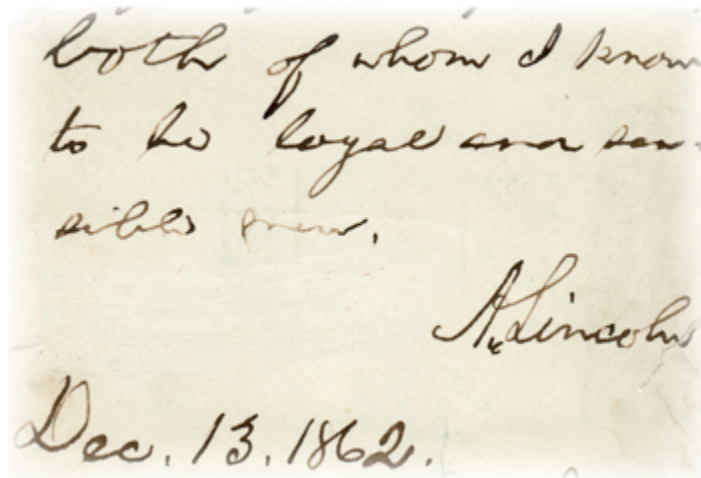 both of whom I know
to be loyal and sen-
sible men.
A. Lincoln
Dec. 13. 1862.